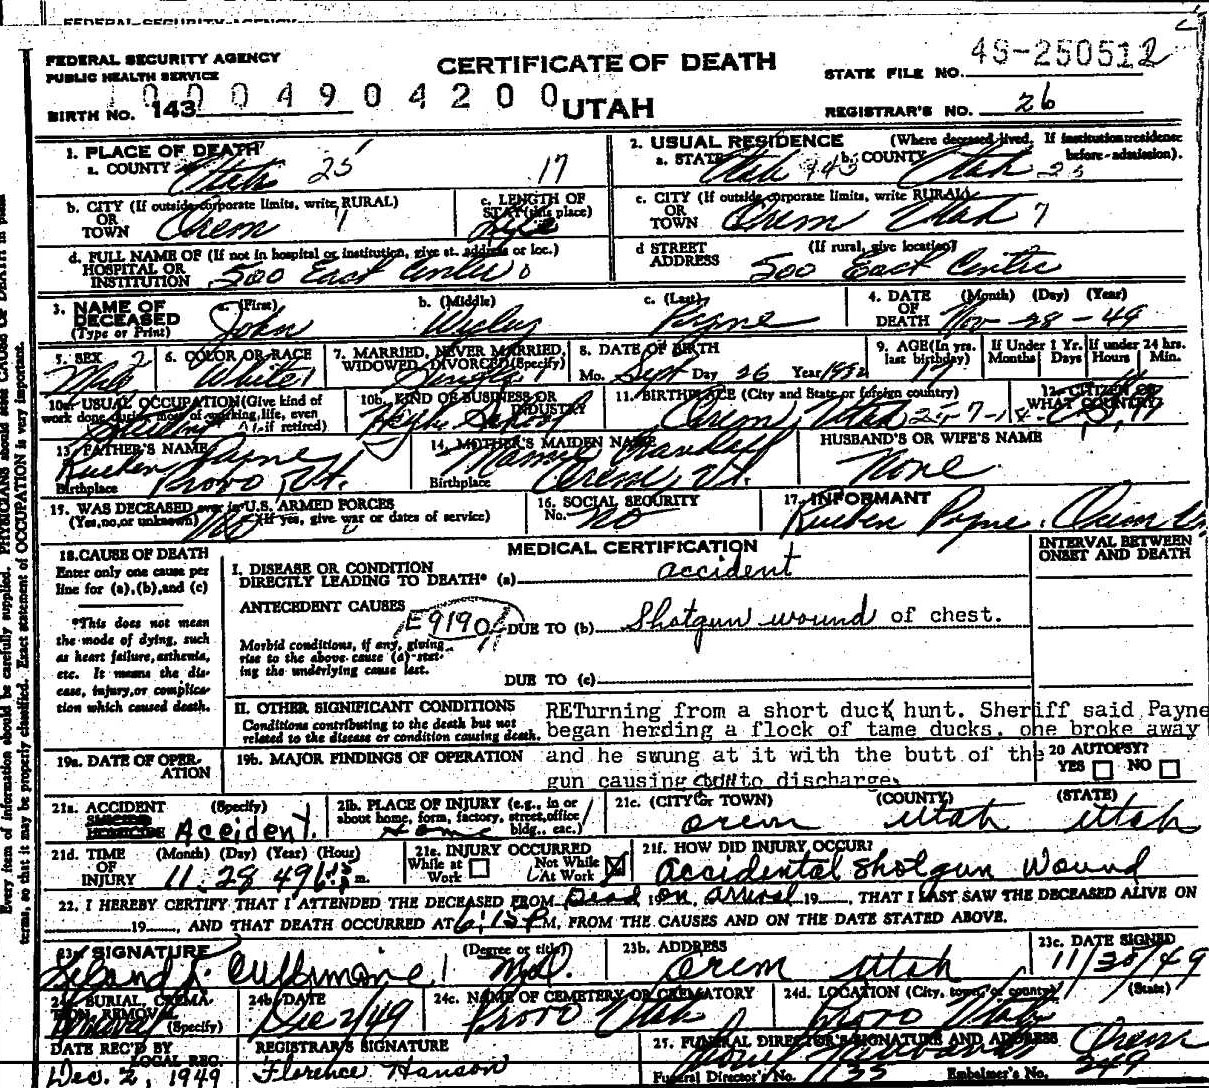 FEDERAL SECURITY AGENCY
FEDERAL SECURITY AGENCY
PUBLIC HEALTH SERVICE
CERTIFICATE OF DEATH
UTAH
STATE FILE NO. 4S-250512
0004904200
BIRTH NO. 143
REGISTRAR'S NO. 26
1. PLACE OF DEATH
a. COUNTY Utah 25 17
2. USUAL RESIDENCE (Where deceased lived. If institution: residence before admission).
a. STATE Utah 945 b. COUNTY Utah 25
b. CITY (If outside corporate limits, write RURAL) OR TOWN Orem
c. LENGTH OF STAY (in this place) Life
c. CITY (If outside corporate limits, write RURAL) OR TOWN Orem Utah 7
d. FULL NAME OF (If not in hospital or institution, give st. address or loc.) HOSPITAL OR INSTITUTION 500 East Center
d STREET ADDRESS (If rural, give location) 500 East Center
3. NAME OF DECEASED (Type or Print) a. (First) John b. (Middle) c. (Last) Payne
4. DATE OF DEATH (Month) (Day) (Year) Nov-28-49
5. SEX Male
6. COLOR OR RACE White
7. MARRIED, NEVER MARRIED, WIDOWED, DIVORCED (Specify) Single
8. DATE OF BIRTH Mo. Sept Day 26 Year 1932
9. AGE (In yrs. last birthday) 17 If Under 1 Yr. Months Days If under 24 hrs. Hours Min.
10a. USUAL OCCUPATION (Give kind of work done during most of working life, even if retired) Student
10b. KIND OF BUSINESS OR INDUSTRY School
11. BIRTHPLACE (City and State or foreign country) Orem, Utah
12. CITIZEN OF WHAT COUNTRY?
13. FATHER'S NAME Reuben Payne
Birthplace Provo, Ut.
14. MOTHER'S MAIDEN NAME Mamie Crandall
Birthplace Orem, Ut.
HUSBAND'S OR WIFE'S NAME
None
15. WAS DECEASED ever in U.S. ARMED FORCES (Yes, no, or unknown) No (If yes, give war or dates of service)
16. SOCIAL SECURITY No. No
17. INFORMANT Reuben Payne. Orem
18. CAUSE OF DEATH
Enter only one cause per line for (a), (b), and (c)
*This does not mean the mode of dying, such as heart failure, asthenia, etc. It means the disease, injury, or complication which caused death.
MEDICAL CERTIFICATION
INTERVAL BETWEEN ONSET AND DEATH
I. DISEASE OR CONDITION DIRECTLY LEADING TO DEATH* (a) accident
ANTECEDENT CAUSES
E9190
DUE TO (b) Shotgun wound of chest.
Morbid conditions, if any, giving rise to the above cause (a) stating the underlying cause last.
DUE TO (c)
II. OTHER SIGNIFICANT CONDITIONS
Conditions contributing to the death but not related to the disease or condition causing death.
RETurning from a short duck hunt. Sheriff said Payne
began herding a flock of tame ducks. one broke away
and he swung at it with the butt of the
gun causing to discharge.
19a. DATE OF OPERATION
19b. MAJOR FINDINGS OF OPERATION
20 AUTOPSY? YES NO
21a. ACCIDENT SUICIDE HOMICIDE (Specify) Accident.
21b. PLACE OF INJURY (e.g., in or about home, form, factory, street, office bldg., eac.) Home
21c. (CITY OR TOWN) (COUNTY) (STATE)
Orem Utah Utah
21d. TIME OF INJURY (Month) (Day) (Year) (Hour) 11 28 49 6:15 m.
21e. INJURY OCCURRED While at Work Not While At Work
21f. HOW DID INJURY OCCUR?
Accidental Shotgun Wound
22. I HEREBY CERTIFY THAT I ATTENDED THE DECEASED FROM Dead on arrival 19, THAT I LAST SAW THE DECEASED ALIVE ON
19, AND THAT DEATH OCCURRED AT 6:15 P M, FROM THE CAUSES AND ON THE DATE STATED ABOVE.
23a. SIGNATURE (Degree or title) M.D.
23b. ADDRESS Orem Utah
23c. DATE SIGNED 11/30/49
24a. BURIAL, CREMATION, REMOVAL (Specify)
24b. DATE Dec 2/49
24c. NAME OF CEMETERY OR CREMATORY Provo Utah
24d. LOCATION (City, town, or county) (State) Provo Utah
DATE REC'D BY LOCAL REG. Dec. 2, 1949
REGISTRAR'S SIGNATURE Florence Hanson
25. FUNERAL DIRECTOR'S SIGNATURE AND ADDRESS Orem
Funeral Director's No. 135 Embalmer's No. 249